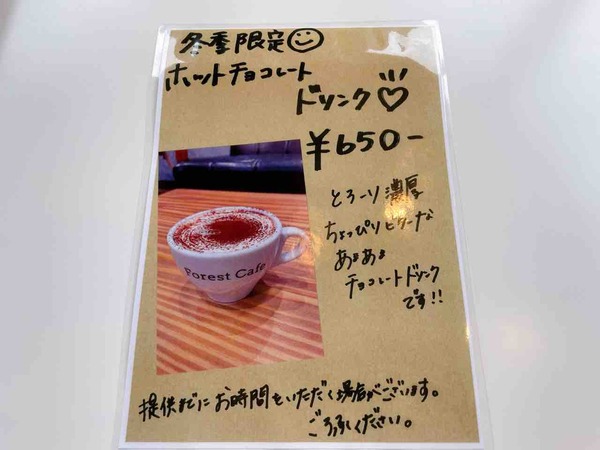 冬季限定
ホットチョコレート
ドリンク
¥650-
とろーり濃厚
ちょっぴりビターな
あまあま
チョコレートドリンク
です!!
Forest Cafe
提供までにお時間をいただく場合がございます。
ご了承ください。